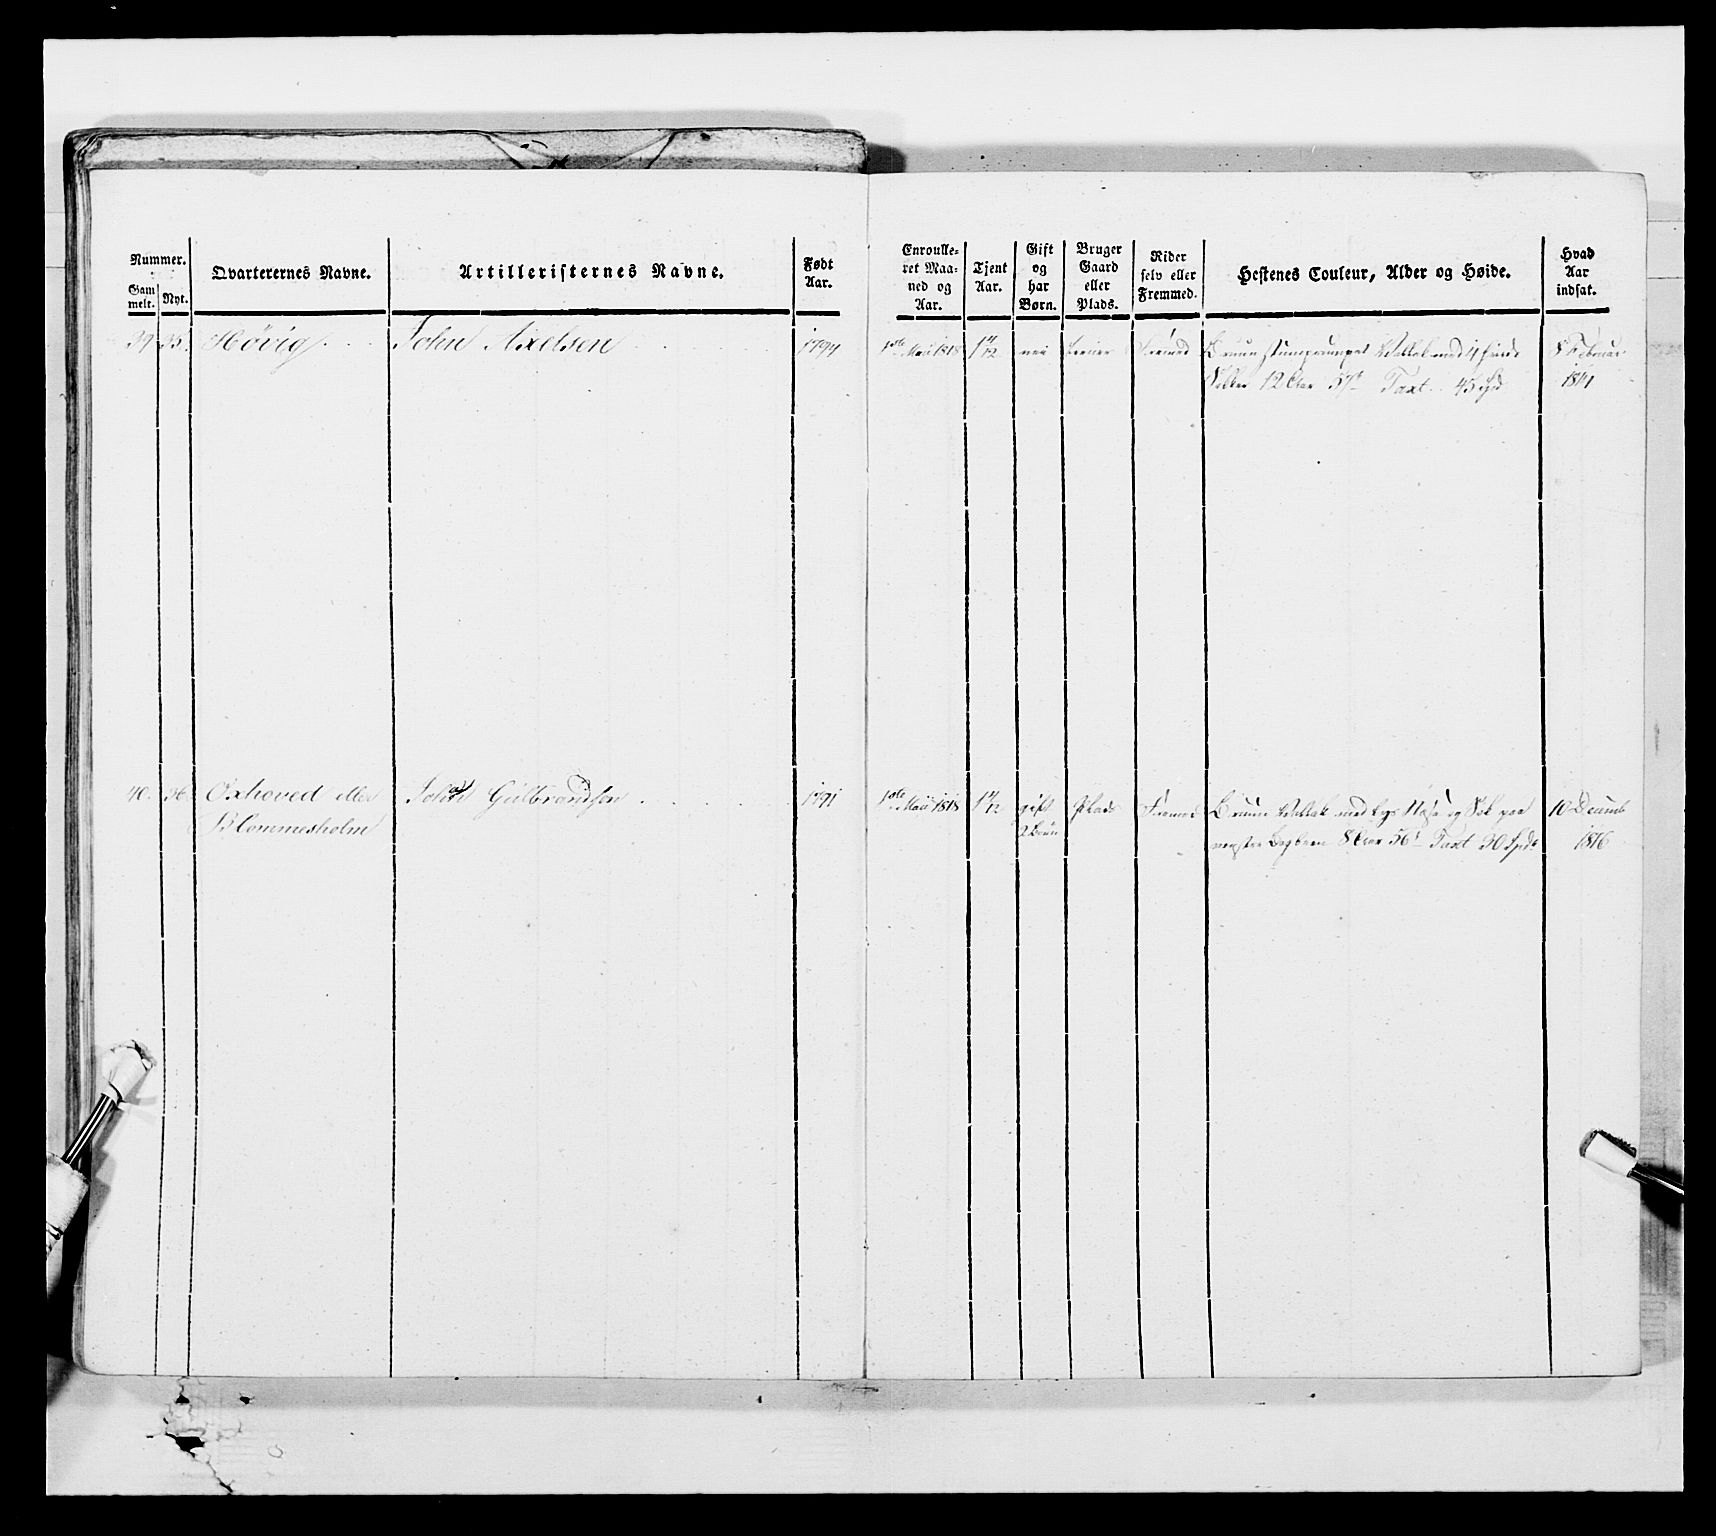 Nummer.
Gam
melt.
Nyt.
Qvarterernes Navne.
Artilleristernes Navne.
Født
Aar.
Enroulle-
ret Maa-
ned og
Aar.
Tjent
Aar.
Gift
og
har
Børn.
Bruger
Gaard
eller
Plads.
Rider
selv eller
Fremmed.
Hestenes Couleur, Alder og Høide.
Hvad
Aar
indsat.
39 35. Høvig John Axelsen 1794 1ste Maii 1818 nei Fremed Bruun Vallak med 4 hvide
12 Aar 57t Taxt 45
8 Februar
1814
40. 36. Oxhoved eller Johan Gulbrandsen 1791 1ste Maii 1818 gift Plads Fremed Bruun Vallak med og Sok paa
Blommesholm
2 Børn
venstre Bagbeen 8 Aar 56t Taxt 30 Spd
10 Decemb
1816